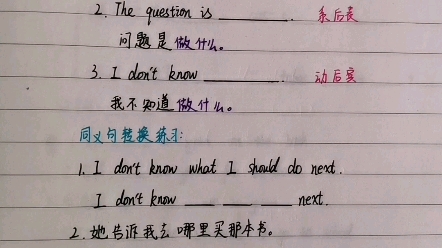 2. The question is ________. 系后表
问题是做什么。
3. I don't know ________. 动后宾
我不知道做什么。
同义句转换练习:
1. I don't know what I should do next.
I don't know ___ ___ ___ next.
2. 她告诉我去哪里买那本书。